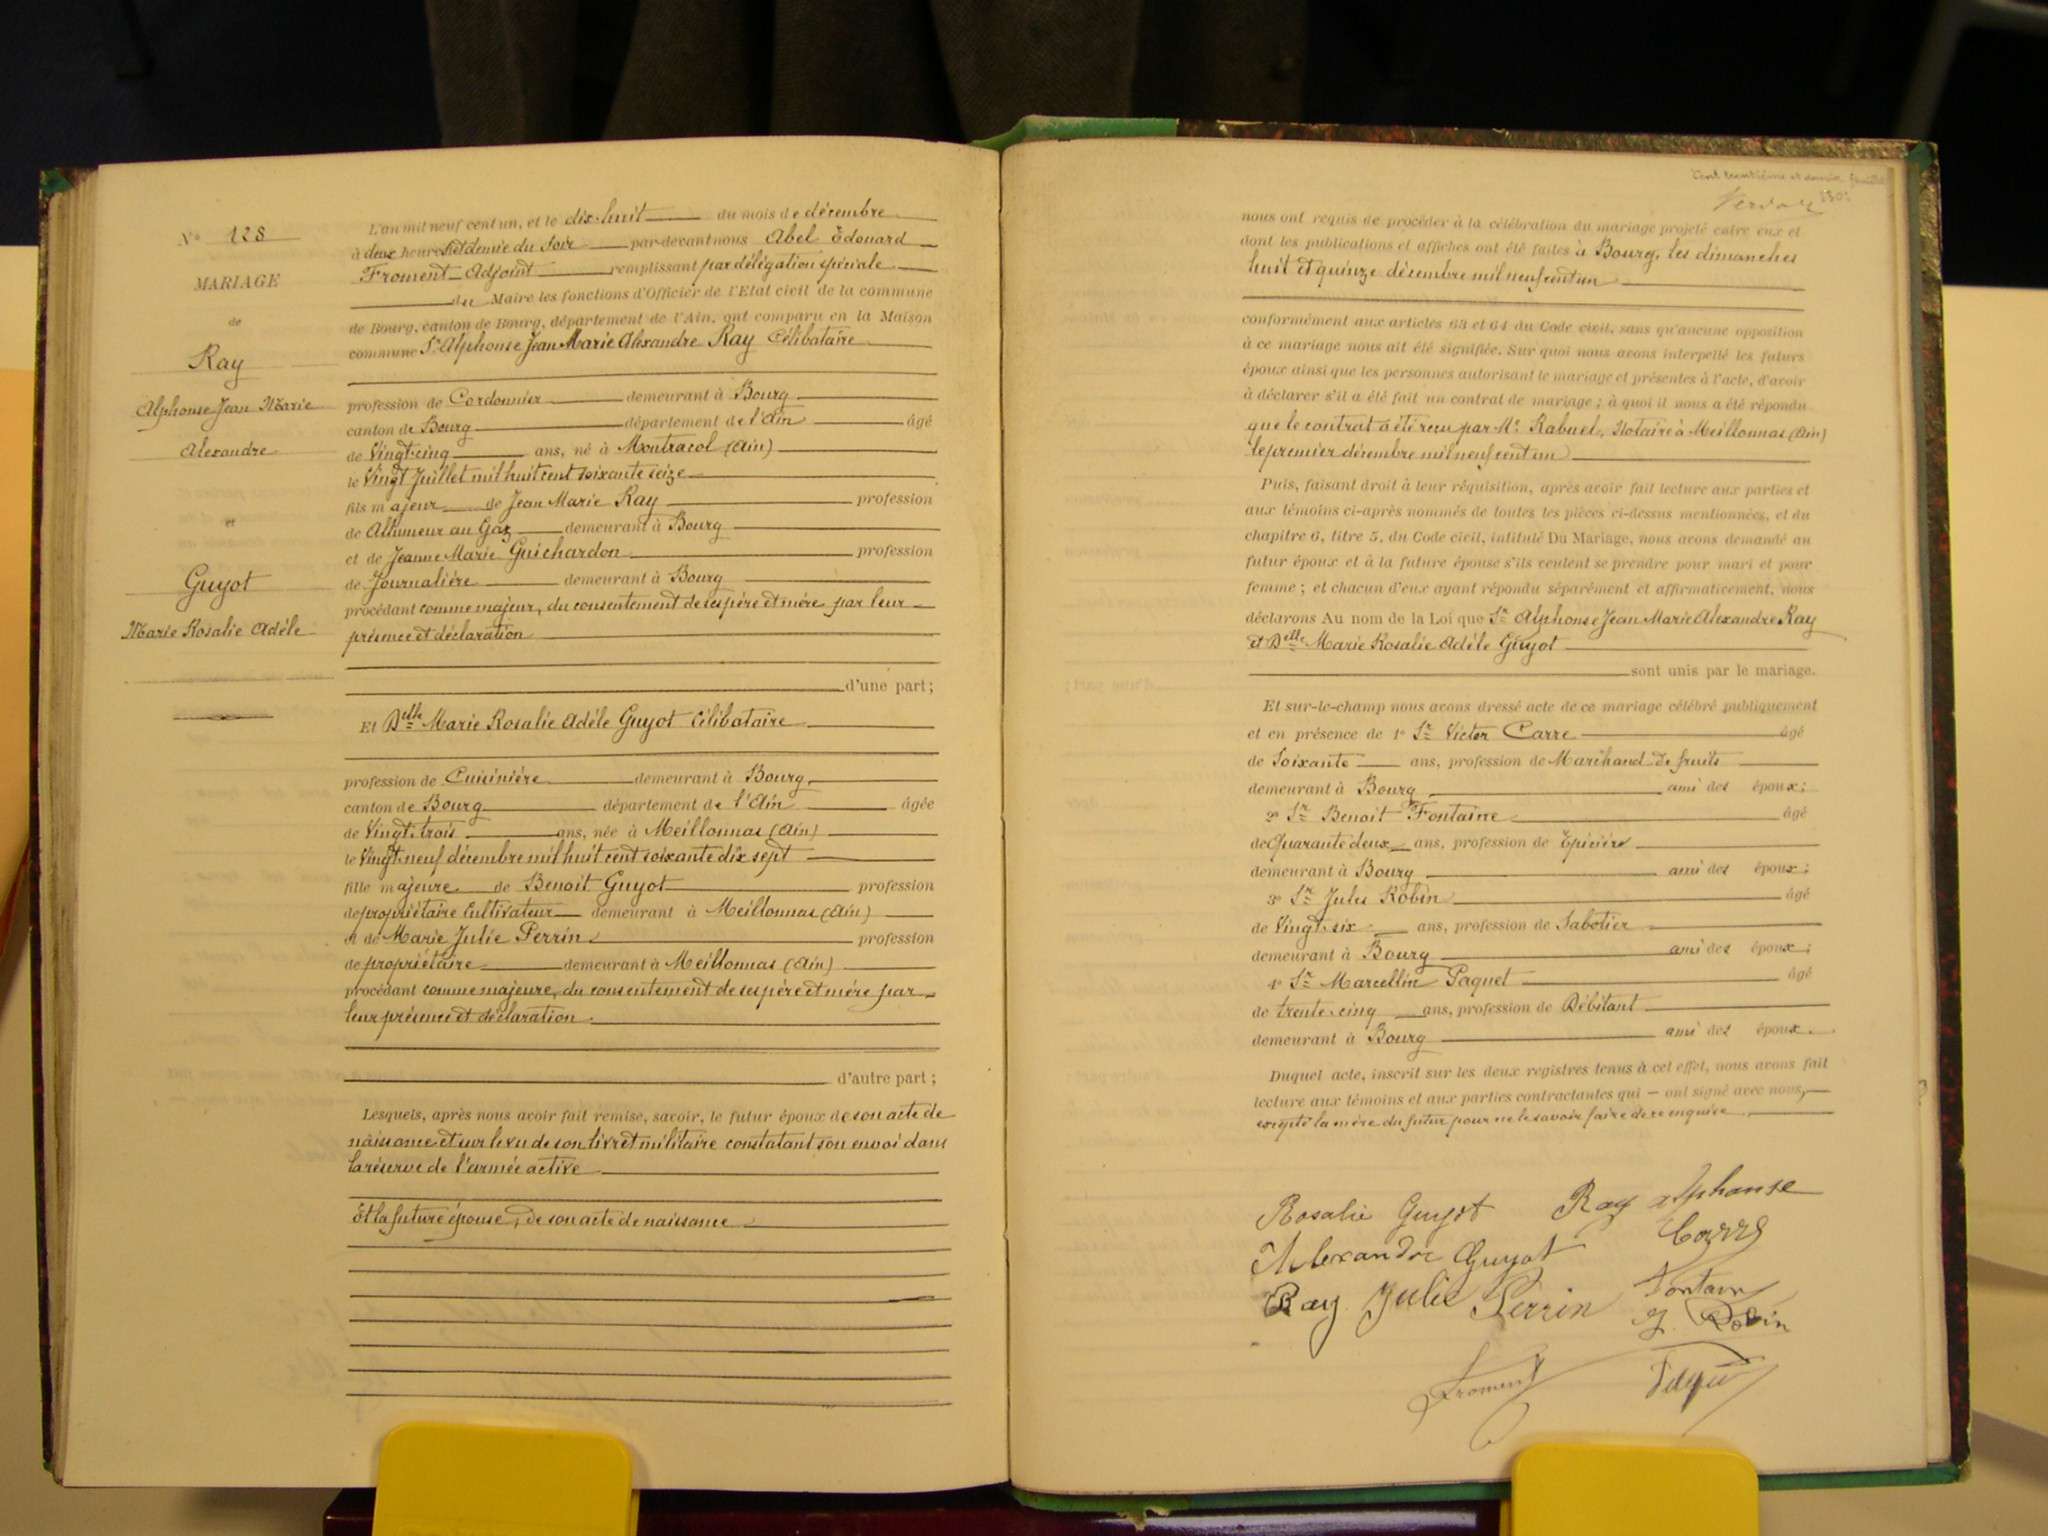 N° 128
MARIAGE
de
Ray
Alphonse Jean Marie
Alexandre
et
Guyot
Marie Rosalie Adèle
L'an mil neuf cent un, et le dix-huit du mois de décembre
à deux heures et demie du soir par-devant nous Abel Édouard
Froment Adjoint remplissant par délégation spéciale
du Maire les fonctions d'Officier de l'Etat civil de la commune
de Bourg, canton de Bourg, département de l'Ain, ont comparu en la Maison
commune Sr Alphonse Jean Marie Alexandre Ray Célibataire
profession de Cordonnier demeurant à Bourg
canton de Bourg département de l'Ain âgé
de Vingt-cinq ans, né à Montracol (Ain)
le Vingt Juillet mil huit cent soixante seize
fils majeur de Jean Marie Ray profession
de Allumeur au Gaz demeurant à Bourg
et de Jeanne Marie Guichardon profession
de Journalière demeurant à Bourg
procédant comme majeur, du consentement de ses père et mère par leur
présence et déclaration
d'une part;
Et Delle Marie Rosalie Adèle Guyot Célibataire
profession de Cuisinière demeurant à Bourg
canton de Bourg département de l'Ain âgée
de Vingt-trois ans, née à Meillonnas (Ain)
le Vingt-neuf décembre mil huit cent soixante dix sept
fille majeure de Benoit Guyot profession
de propriétaire Cultivateur demeurant à Meillonnas (Ain)
et de Marie Julie Perrin profession
de propriétaire demeurant à Meillonnas (Ain)
procédant comme majeure, du consentement de ses père et mère par
leur présence et déclaration
d'autre part;
Lesquels, après nous avoir fait remise, savoir, le futur époux de son acte de
naissance et sur le vu de son livret militaire constatant son envoi dans
la réserve de l'armée active
Et la future épouse, de son acte de naissance
nous ont requis de procéder à la célébration du mariage projeté entre eux et
dont les publications et affiches ont été faites à Bourg, les dimanches
huit et quinze décembre mil neuf cent un
conformément aux articles 63 et 64 du Code civil, sans qu'aucune opposition
à ce mariage nous ait été signifiée. Sur quoi nous avons interpellé les futurs
époux ainsi que les personnes autorisant le mariage et présentes à l'acte, d'avoir
à déclarer s'il a été fait un contrat de mariage; à quoi il nous a été répondu
que le contrat a été reçu par Me Rabuel, Notaire à Meillonnas (Ain)
le premier décembre mil neuf cent un
Puis, faisant droit à leur réquisition, après avoir fait lecture aux parties et
aux témoins ci-après nommés de toutes les pièces ci-dessus mentionnées, et du
chapitre 6, titre 5, du Code civil, intitulé Du Mariage, nous avons demandé au
futur époux et à la future épouse s'ils veulent se prendre pour mari et pour
femme; et chacun d'eux ayant répondu séparément et affirmativement, nous
déclarons Au nom de la Loi que Sr Alphonse Jean Marie Alexandre Ray
et Delle Marie Rosalie Adèle Guyot
sont unis par le mariage.
Et sur-le-champ nous avons dressé acte de ce mariage célébré publiquement
et en présence de 1° Sr Victor Carre âgé
de Soixante ans, profession de Marchand de fruits
demeurant à Bourg ami des époux;
2° Sr Benoit Fontaine âgé
de Quarante deux ans, profession de Epicière
demeurant à Bourg ami des époux;
3° Sr Jules Robin âgé
de Vingt-six ans, profession de Sabotier
demeurant à Bourg ami des époux;
4° Sr Marcellin Paquet âgé
de trente-cinq ans, profession de Débitant
demeurant à Bourg ami des époux.
Duquel acte, inscrit sur les deux registres tenus à cet effet, nous avons fait
lecture aux témoins et aux parties contractantes qui — ont signé avec nous,
excepté la mère du futur pour ne le savoir faire de ce enquise
Rosalie Guyot Ray Alphonse
Alexandre Guyot Carre
Ray Julie Perrin Fontain
J. Robin
Froment